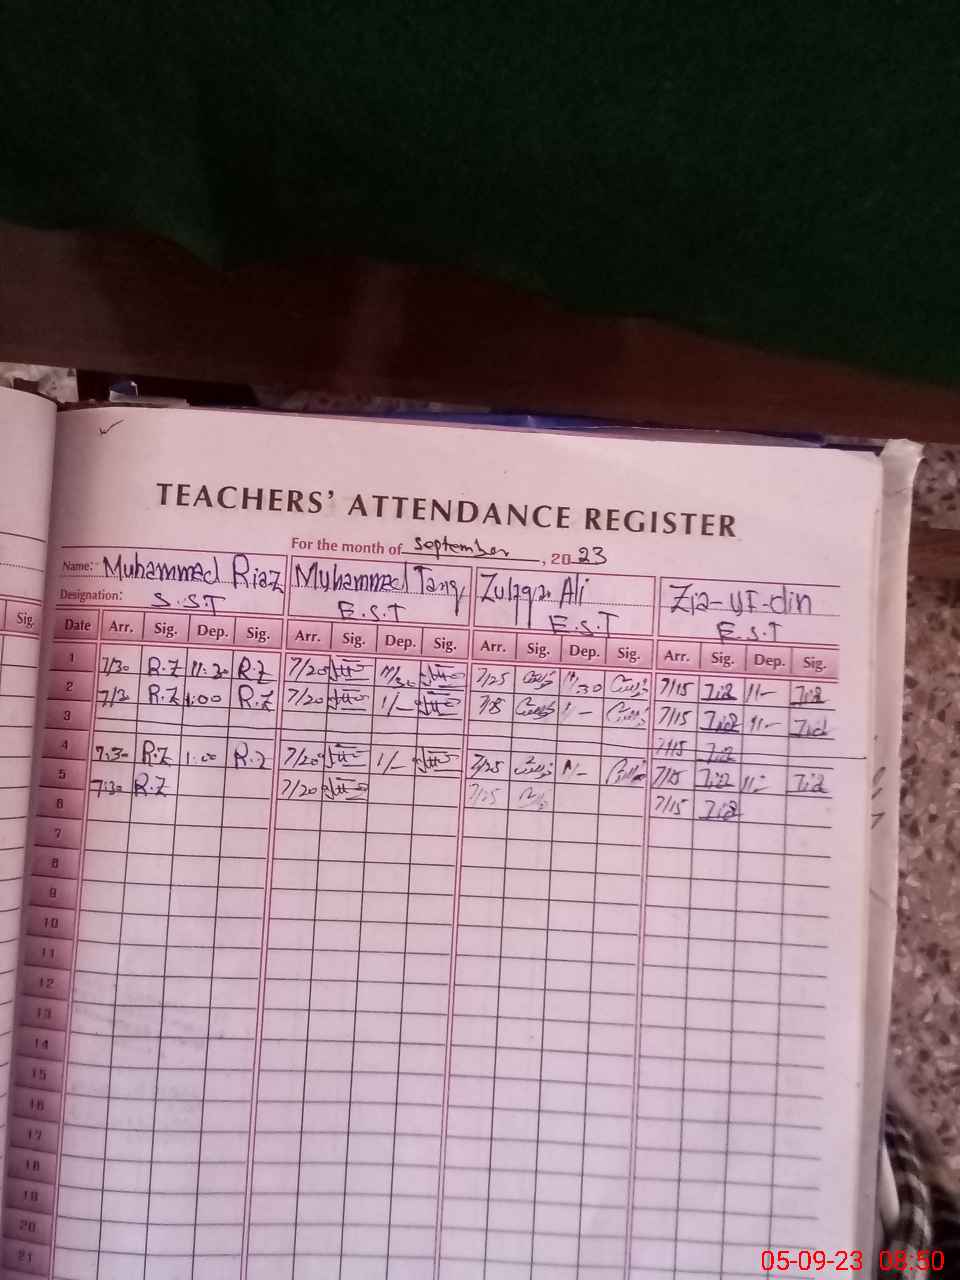 TEACHERS' ATTENDANCE REGISTER
For the month of September, 2023
Name: Muhammad Riaz Muhammad Tariq Zulfqar Ali Zia-UI-din
Designation: S.S.T E.S.T E.S.T E.S.T
Sig. Date Arr. Sig. Dep. Sig. Arr. Sig. Dep. Sig. Arr. Sig. Dep. Sig. Arr. Sig. Dep. Sig.
1 7/30 R.Z 11:30 R.Z 7/20 7/25 7/15 Zia 11/- Zia
2 7/30 R.Z 1:00 R.Z 7/20 1/- 7/15 Zia Zia
3 7/15 Zia
4 7:30 R.Z 1:00 R.Z 7/20 1/- 7/25 7/15 Zia Zia
5 7:30 R.Z 7/20 7/25 7/15 Zia
6
7
8
9
10
11
12
13
14
15
16
17
18
19
20
21
05-09-23 08:50